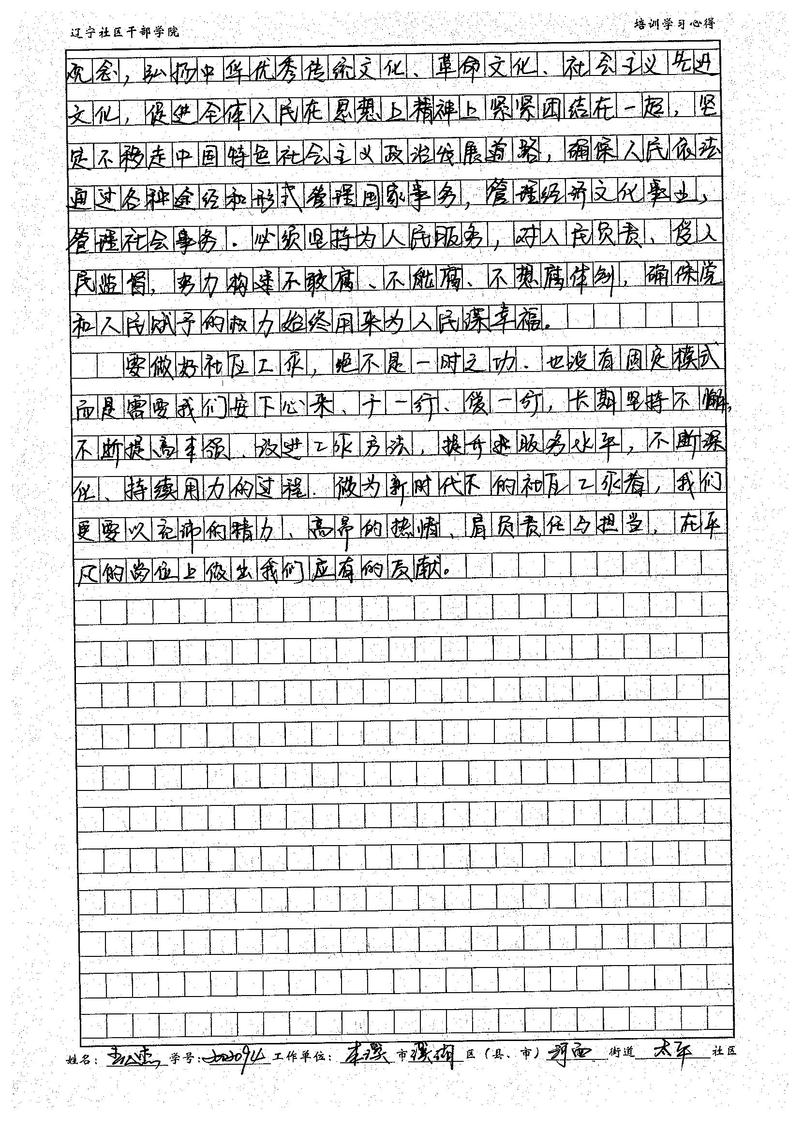 辽宁社区干部学院
培训学习心得
观念，弘扬中华优秀传统文化、革命文化、社会主义先进
文化，促进全体人民在思想上精神上紧紧团结在一起，坚
定不移走中国特色社会主义政治发展道路，确保人民依法
通过各种途径和形式管理国家事务，管理经济文化事业，
管理社会事务．必须坚持为人民服务，对人民负责、受人
民监督，努力构建不敢腐、不能腐、不想腐体制，确保党
和人民赋予的权力始终用来为人民谋幸福。
要做好社区工作，绝不是一时之功．也没有固定模式
而是需要我们安下心来、干一行、爱一行，长期坚持不懈，
不断提高本领．改进工作方法，提升服务水平，不断深
化、持续用力的过程．做为新时代下的社区工作者，我们
更要以充沛的精力、高昂的热情、肩负责任与担当，在平
凡的岗位上做出我们应有的贡献。
姓名： 学号: 工作单位： 本溪 市 溪湖 区（县、市） 河西 街道 太平 社区